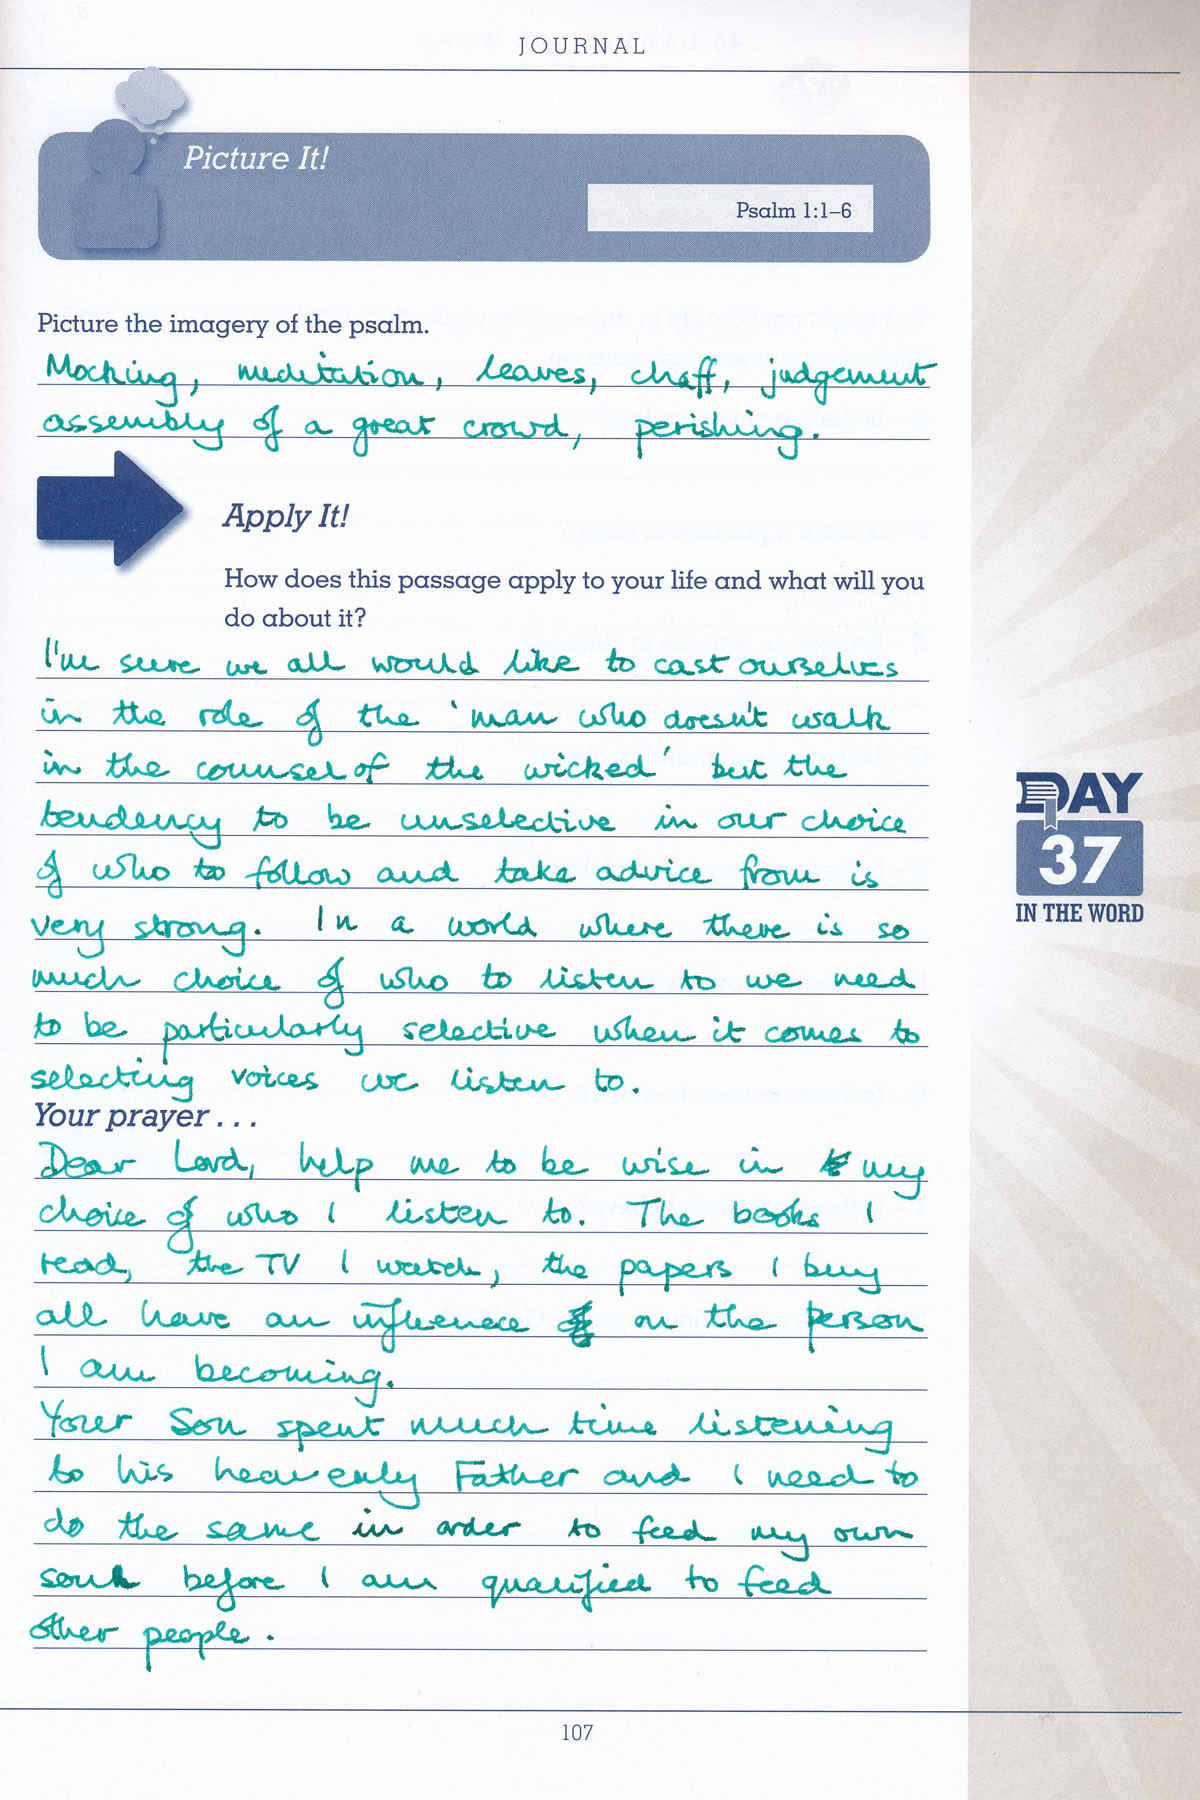 JOURNAL
Picture It!
Psalm 1:1–6
Picture the imagery of the psalm.
Mocking, meditation, leaves, chaff, judgement
assembly of a great crowd, perishing.
Apply It!
How does this passage apply to your life and what will you
do about it?
I'm sure we all would like to cast ourselves
in the role of the 'man who doesn't walk
in the counsel of the wicked' but the
tendency to be unselective in our choice
of who to follow and take advice from is
very strong. In a world where there is so
much choice of who to listen to we need
to be particularly selective when it comes to
selecting voices we listen to.
Your prayer . . .
Dear Lord, help me to be wise in my
choice of who I listen to. The books I
read, the TV I watch, the papers I buy
all have an influence on the person
I am becoming.
Your Son spent much time listening
to his heavenly Father and I need to
do the same in order to feed my own
soul before I am qualified to feed
other people.
DAY
37
IN THE WORD
107